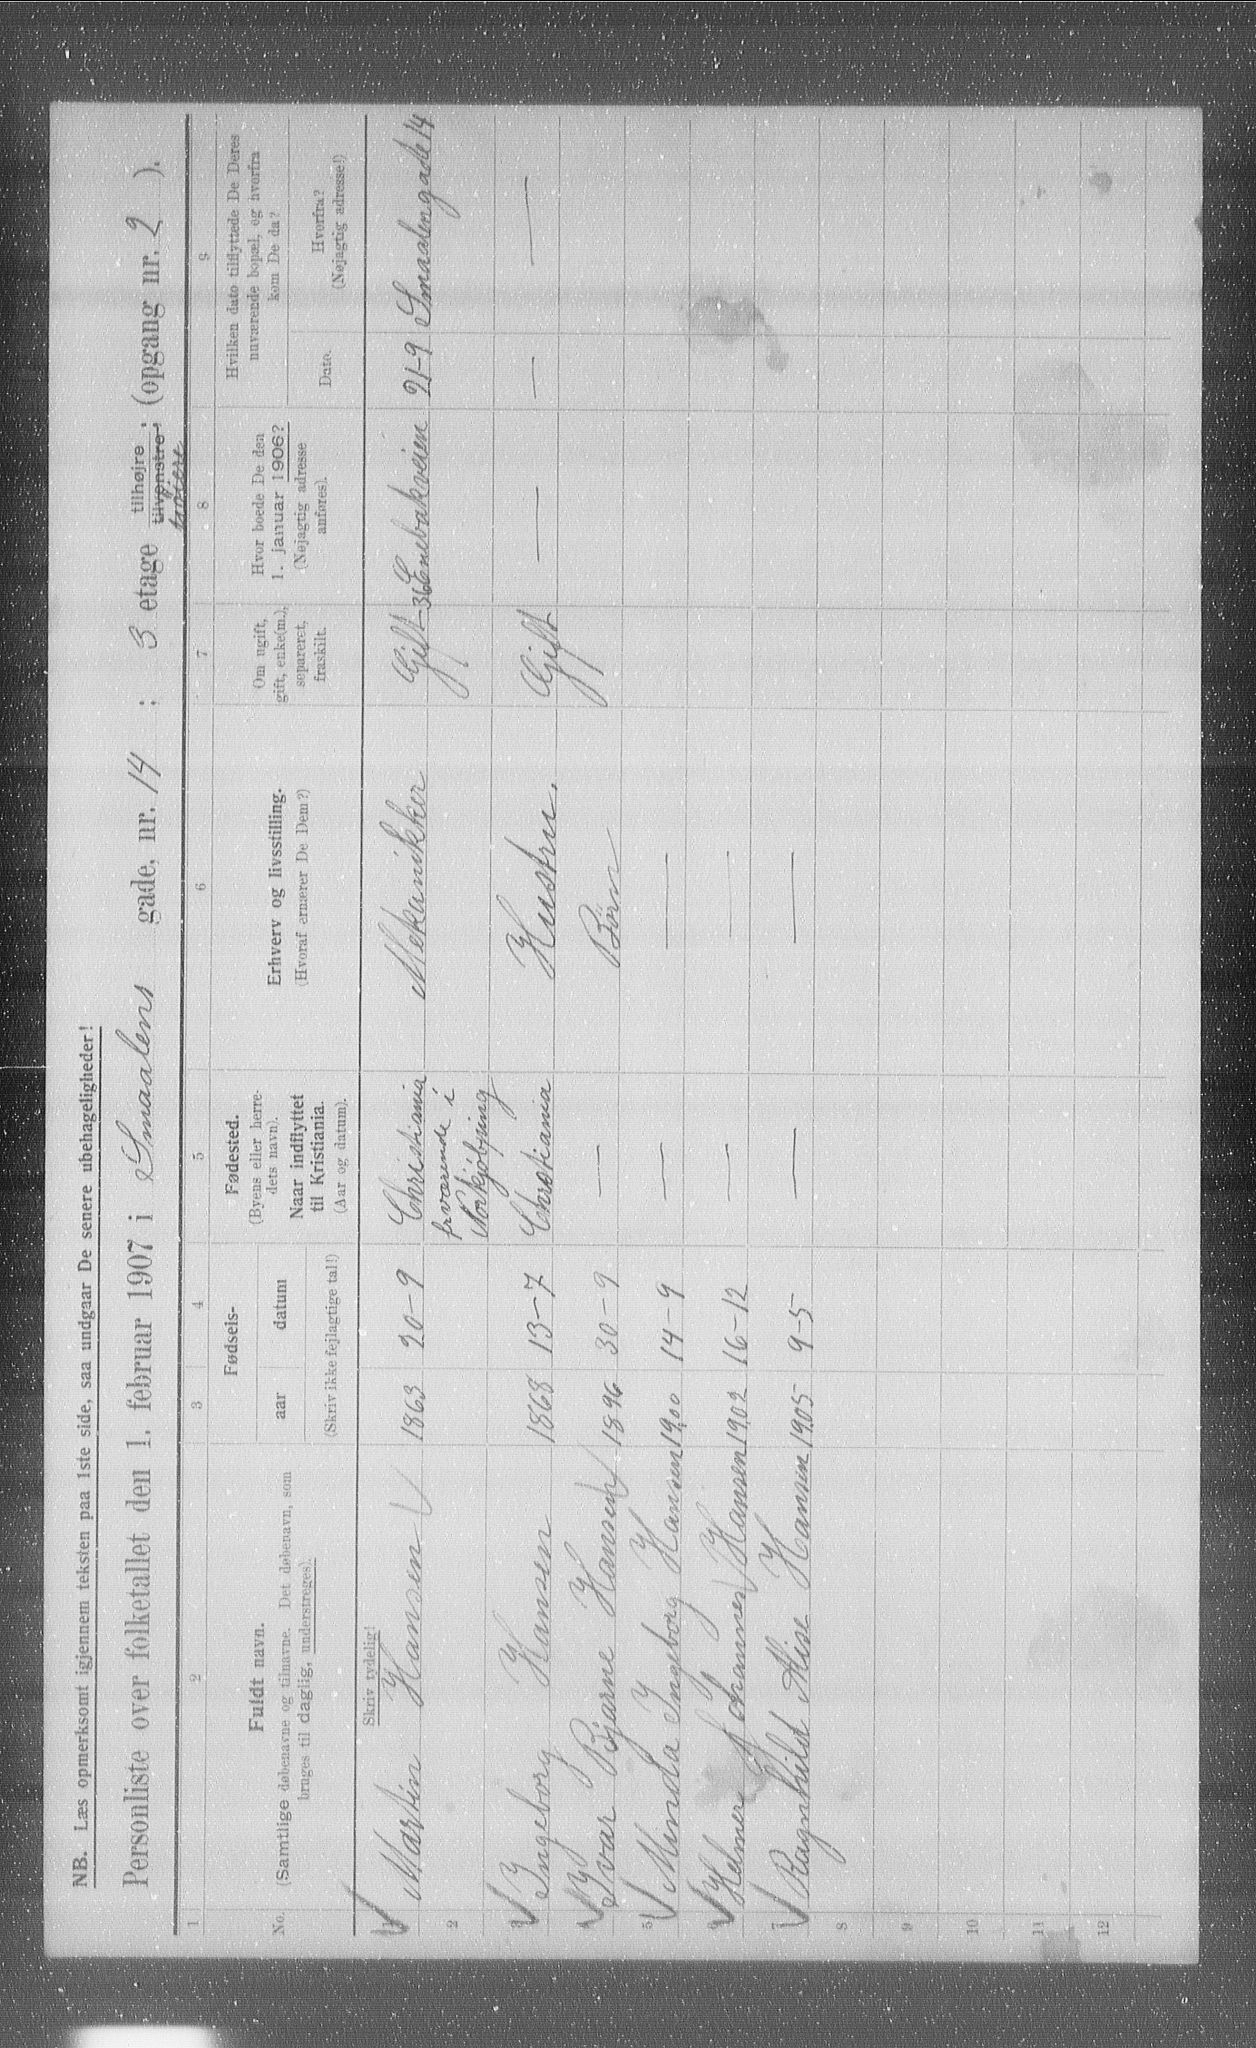 NB. Læs opmerksomt igjennem teksten paa 1ste side, saa undgaar De senere ubehageligheder!
Personliste over folketallet den 1. februar 1907 i Smaalens gade, nr. 14 ; 3 etage tilhøjre, tilvenstre, (opgang nr. 2 ).
1 2 3 4 5 6 7 8 9
No.
Fuldt navn.
(Samtlige døbenavne og tilnavne. Det døbenavn, som
bruges til daglig, understreges).
Fødsels-
aar datum
(Skriv ikke fejlagtige tal!)
Fødested.
(Byens eller herre-
dets navn).
Naar indflyttet
til Kristiania.
(Aar og datum).
Erhverv og livsstilling.
(Hvoraf ernærer De Dem?)
Om ugift,
gift, enke(m.),
separeret,
fraskilt.
Hvor boede De den
1. januar 1906?
(Nøjagtig adresse
anføres).
Hvilken dato tilflyttede De Deres
nuværende bopæl, og hvorfra
kom De da?
Dato.
Hvorfra?
(Nøjagtig adresse!)
Skriv tydelig!
1 Martin Hansen 1863 20-9 Christiania Mekanikker Gift 36 Enebakveien 21-9 Smaalengade 14
2 fr værende i Norkjøbning
3 Ingeborg Hansen 1868 13-7 Christiania Hustru. Gift — — —
Ivar Bjarne Hansen 1896 30-9 — Börn
5 Minda Ingeborg Hansen 1900 14-9 — —
6 Helmer Johannes Hansen 1902 16-12 — —
7 Ragnhild Alise Hansen 1905 9-5 — —
8
9
10
11
12